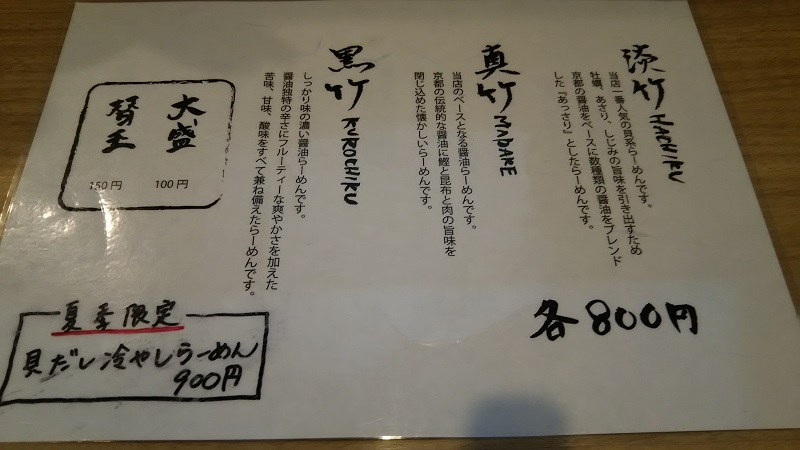 淡竹 HACHIKU
当店一番人気の貝系らーめんです。
牡蠣、あさり、しじみの旨味を引き出すため
京都の醤油をベースに数種類の醤油をブレンド
した『あっさり』としたらーめんです。
真竹 MADAKE
当店のベースとなる醤油らーめんです。
京都の伝統的な醤油に鰹と昆布と肉の旨味を
閉じ込めた懐かしいらーめんです。
黒竹 KUROCHIKU
しっかり味の濃い醤油らーめんです。
醤油独特の辛さにフルーティーな爽やかさを加えた
苦味、甘味、酸味をすべて兼ね備えたらーめんです。
大盛
100円
替玉
150円
各800円
夏季限定
貝だし冷やしらーめん
900円